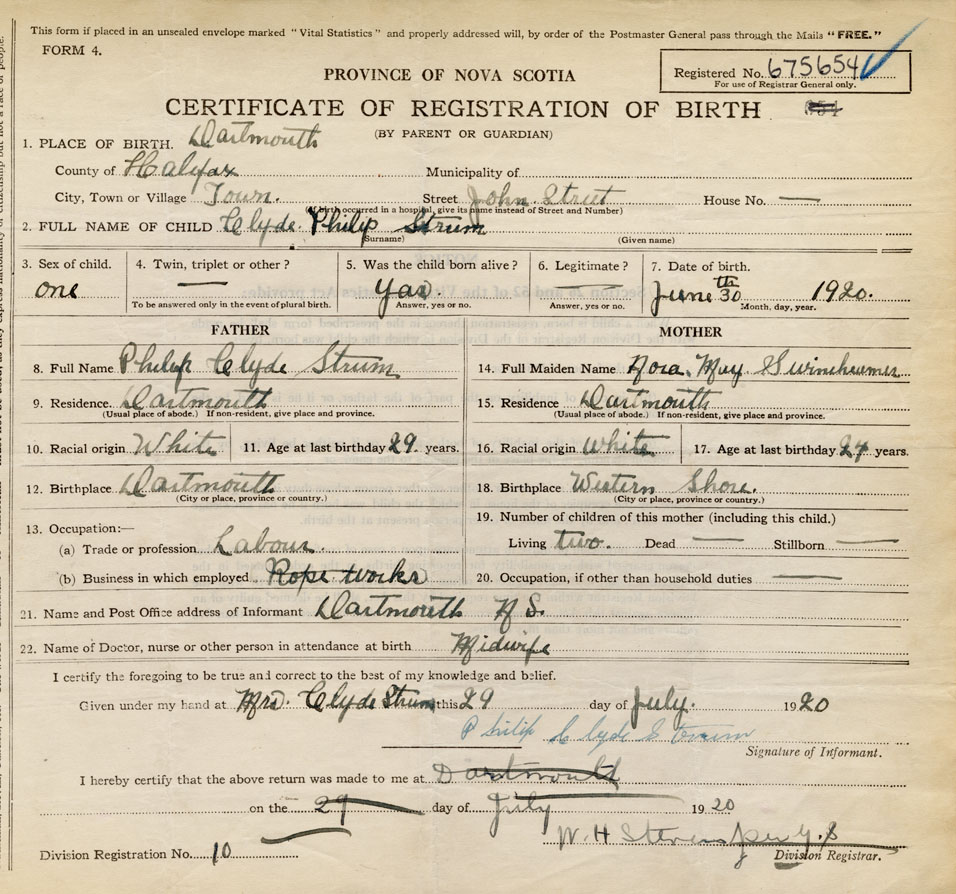 This form if placed in an unsealed envelope marked "Vital Statistics" and properly addressed will, by order of the Postmaster General pass through the Mails "FREE."
FORM 4.
Registered No. 675654
For use of Registrar General only.
PROVINCE OF NOVA SCOTIA
CERTIFICATE OF REGISTRATION OF BIRTH
(BY PARENT OR GUARDIAN)
1. PLACE OF BIRTH. Dartmouth
County of Halifax Municipality of
City, Town or Village Town. Street John Street House No. —
(If birth occurred in a hospital, give its name instead of Street and Number)
2. FULL NAME OF CHILD Clyde Philip Strum
(Surname) (Given name)
3. Sex of child. 4. Twin, triplet or other? 5. Was the child born alive? 6. Legitimate? 7. Date of birth.
one — — June 30th 1920.
To be answered only in the event of plural birth. Answer, yes or no. Answer, yes or no. Month, day, year.
FATHER MOTHER
8. Full Name Philip Clyde Strum 14. Full Maiden Name Nora May
9. Residence Dartmouth 15. Residence Dartmouth
(Usual place of abode.) If non-resident, give place and province. (Usual place of abode.) If non-resident, give place and province.
10. Racial origin White 11. Age at last birthday 29. years. 16. Racial origin White 17. Age at last birthday years.
12. Birthplace Dartmouth 18. Birthplace Western Shore.
(City or place, province or country.) (City or place, province or country.)
13. Occupation:— 19. Number of children of this mother (including this child.)
(a) Trade or profession Labour. Living two. Dead — Stillborn —
(b) Business in which employed Rope works 20. Occupation, if other than household duties —
21. Name and Post Office address of Informant Dartmouth N S.
22. Name of Doctor, nurse or other person in attendance at birth Midwife
I certify the foregoing to be true and correct to the best of my knowledge and belief.
Given under my hand at Mrs. Clyde Strum this 29 day of July. 1920
Philip Clyde Strum
Signature of Informant.
I hereby certify that the above return was made to me at Dartmouth
on the 29 day of July 1920
W. H Stevens
Division Registration No. 10 Division Registrar.